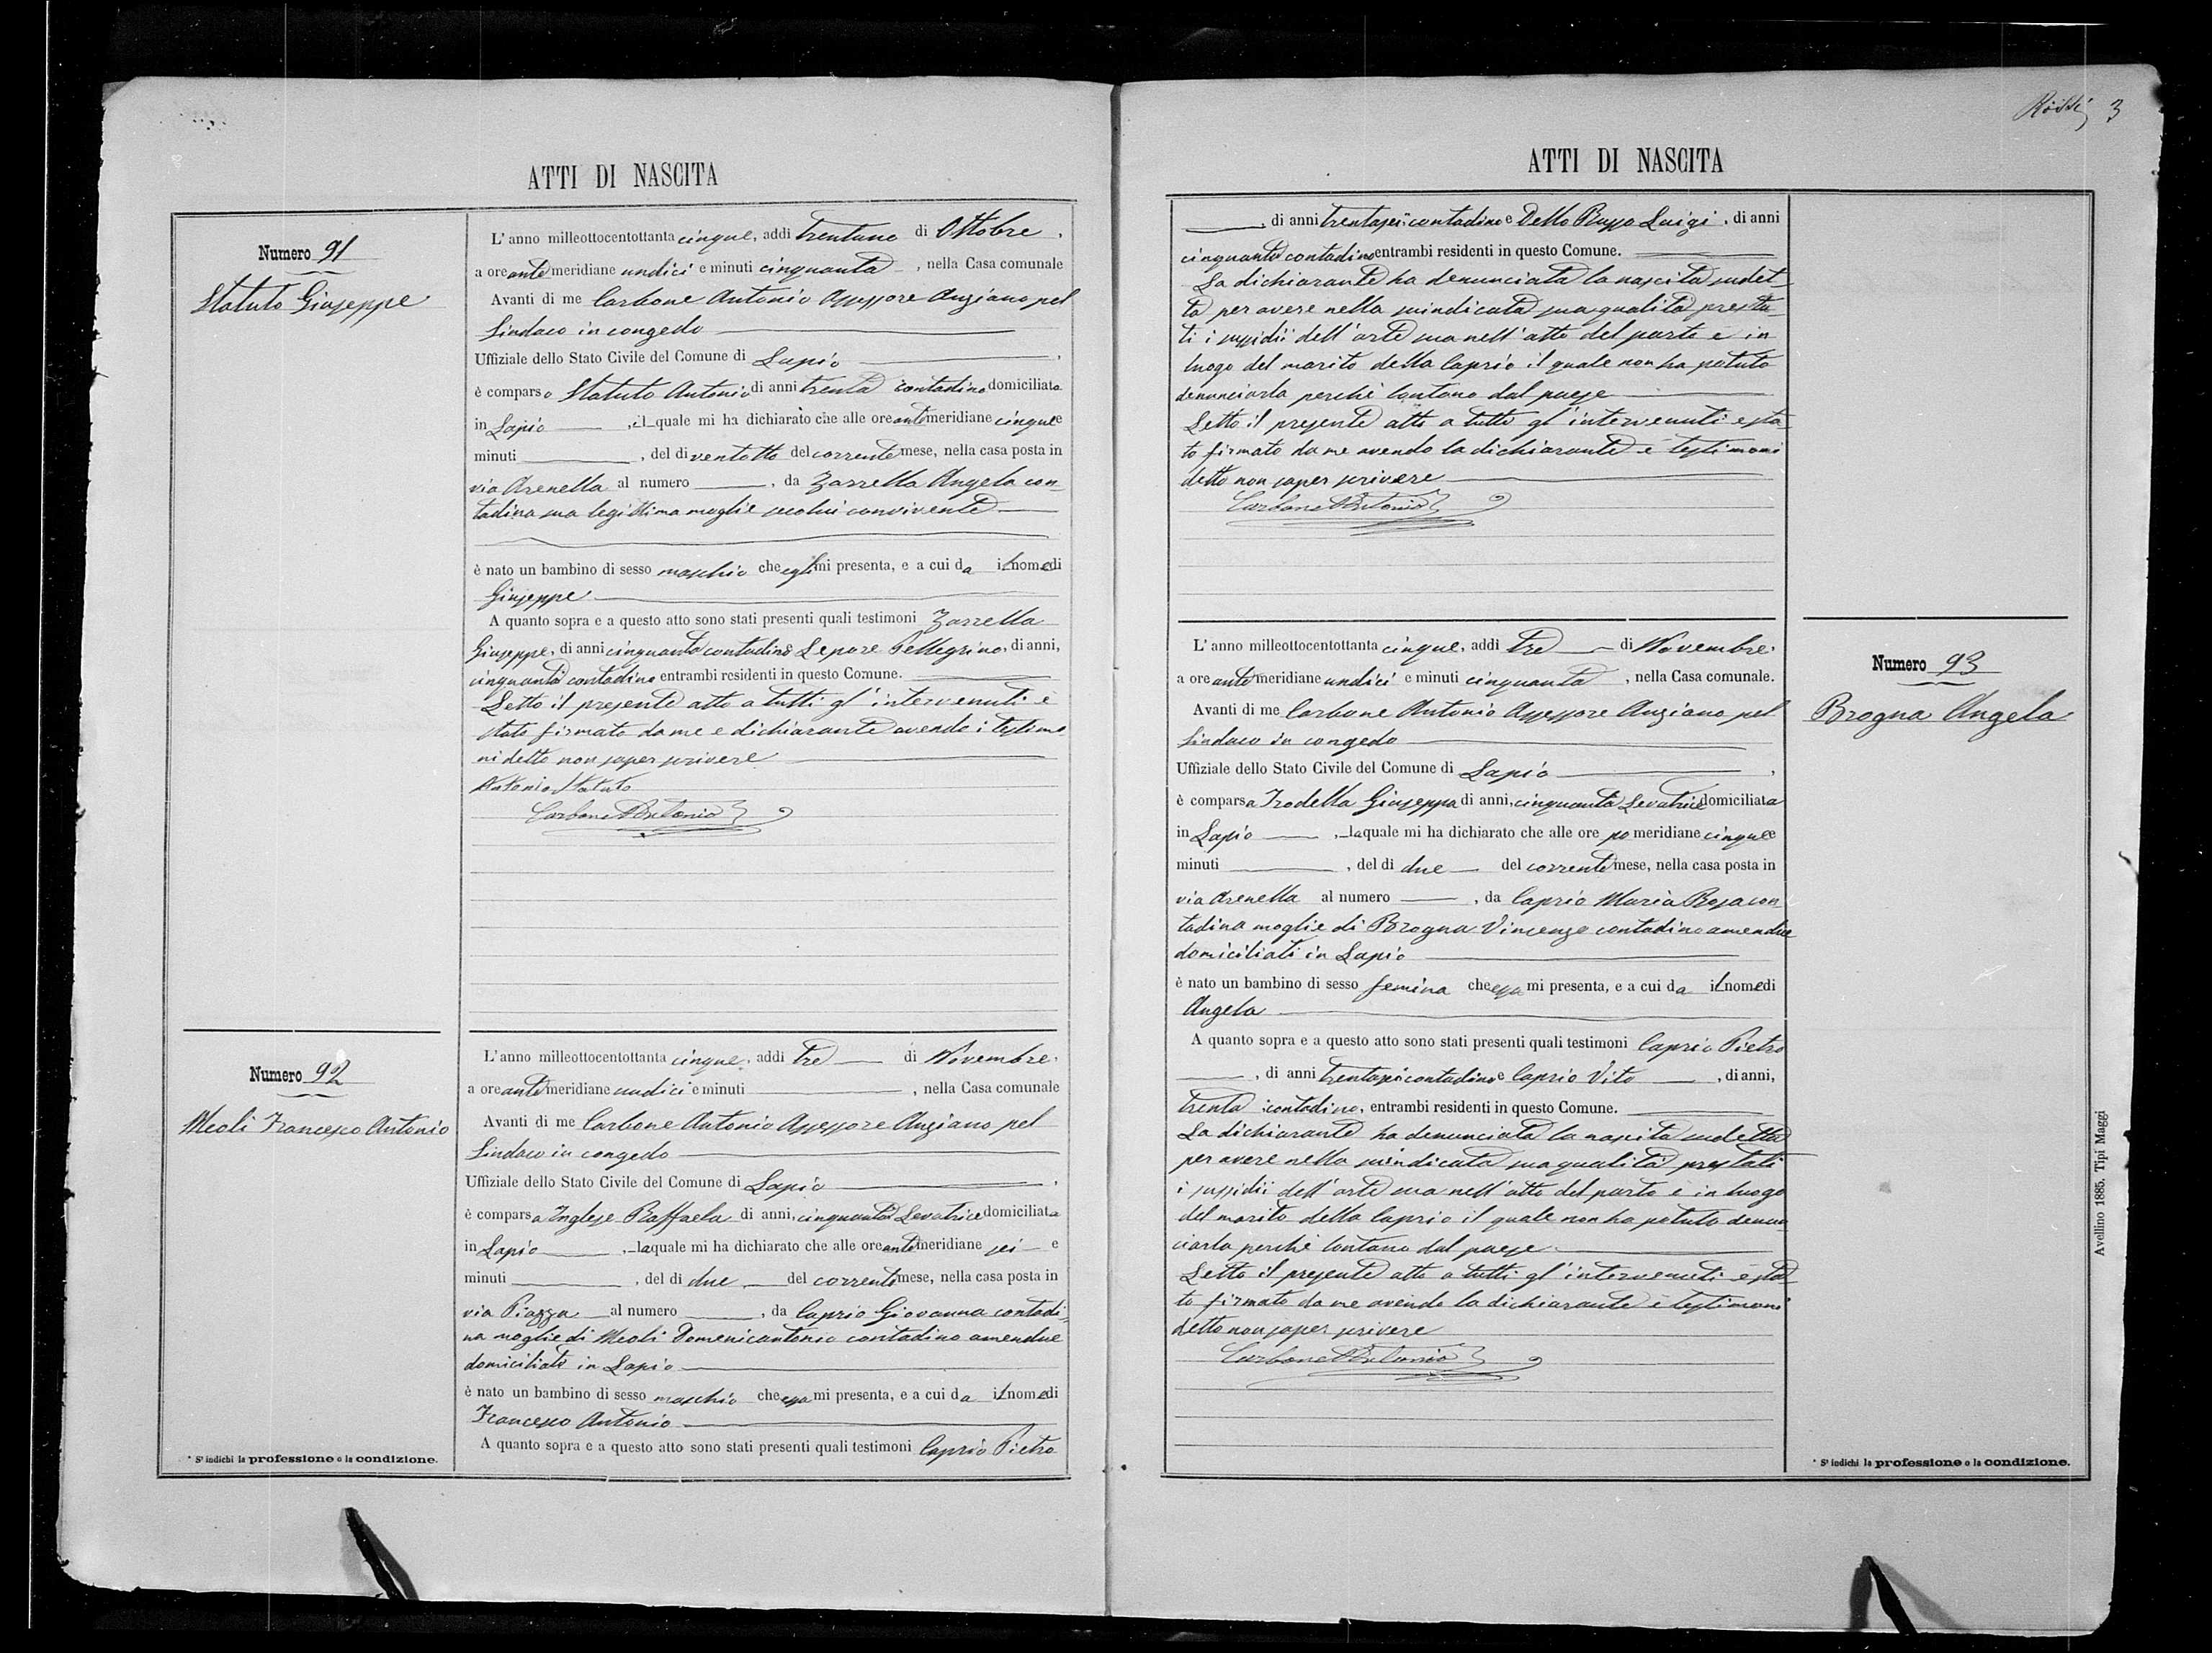 ATTI DI NASCITA
Numero 91
Statuto Giuseppe
L'anno milleottocentottanta cinque, addì trentuno di Ottobre,
a ore antemeridiane undici e minuti cinquanta, nella Casa comunale
Avanti di me Carbone Antonio Assessore Anziano pel
Sindaco in congedo
Uffiziale dello Stato Civile del Comune di Lapio,
è comparso Statuto Antonio di anni trenta contadino domiciliato
in Lapio, il quale mi ha dichiarato che alle ore antemeridiane cinque e
minuti, del dì ventotto del corrente mese, nella casa posta in
via Arenella al numero, da Zarrella Angela con-
tadina sua legittima moglie secolui convivente
è nato un bambino di sesso maschio che egli mi presenta, e a cui da il nome di
Giuseppe
A quanto sopra e a questo atto sono stati presenti quali testimoni Zarrella
Giuseppe, di anni cinquanta contadino Lepore Pellegrino, di anni,
cinquanta contadino entrambi residenti in questo Comune.
Letto il presente atto a tutti gl'intervenuti è
stato firmato da me e dichiarante avendo i testimo
ni detto non saper scrivere
Antonio Statuto
Carbone Antonio
Numero 92
Meoli Francesco Antonio
L'anno milleottocentottanta cinque, addì tre di Novembre,
a ore antemeridiane undici e minuti, nella Casa comunale
Avanti di me Carbone Antonio Assessore Anziano pel
Sindaco in congedo
Uffiziale dello Stato Civile del Comune di Lapio,
è comparsa Inglese Raffaela di anni, cinquanta Levatrice domiciliata
in Lapio, la quale mi ha dichiarato che alle ore antemeridiane sei e
minuti, del dì due del corrente mese, nella casa posta in
via Piazza al numero, da Caprio Giovanna contadi-
na moglie di Meoli Domenicantonio contadino amendue
domiciliati in Lapio
è nato un bambino di sesso maschio che essa mi presenta, e a cui da il nome di
Francesco Antonio
A quanto sopra e a questo atto sono stati presenti quali testimoni Caprio Pietro
* S'indichi la professione o la condizione.
3
ATTI DI NASCITA
, di anni trentasei contadino e Dello Russo Luigi, di anni
cinquanta contadino entrambi residenti in questo Comune.
La dichiarante ha denunciata la nascita sudet-
ta per avere nella suindicata sua qualità presta-
ti i sussidii dell'arte sua nell'atto del parto e in
luogo del marito della Caprio il quale non ha potuto
denunciarla perchè lontano dal paese
Letto il presente atto a tutti gl'intervenuti è sta-
to firmato da me avendo la dichiarante e testimoni
detto non saper scrivere
Carbone Antonio
L'anno milleottocentottanta cinque, addì tre di Novembre,
a ore antemeridiane undici e minuti cinquanta, nella Casa comunale.
Avanti di me Carbone Antonio Assessore Anziano pel
Sindaco in congedo
Uffiziale dello Stato Civile del Comune di Lapio,
è comparsa Trodella Giuseppa di anni, cinquanta Levatrice domiciliata
in Lapio, la quale mi ha dichiarato che alle ore pomeridiane cinque e
minuti, del dì due del corrente mese, nella casa posta in
via Arenella al numero, da Caprio Maria Rosa con
tadina moglie di Brogna Vincenzo contadino amendue
domiciliati in Lapio
è nato un bambino di sesso femina che essa mi presenta, e a cui da il nome di
Angela
A quanto sopra e a questo atto sono stati presenti quali testimoni Caprio Pietro
, di anni trentasei contadino e Caprio Vito, di anni,
trenta contadino, entrambi residenti in questo Comune.
La dichiarante ha denunciata la nascita sudetta
per avere nella suindicata sua qualità prestati
i sussidii dell'arte sua nell'atto del parto e in luogo
del marito della Caprio il quale non ha potuto denun
ciarla perchè lontano dal paese
Letto il presente atto a tutti gl'intervenuti è sta-
to firmato da me avendo la dichiarante e testimoni
detto non saper scrivere
Carbone Antonio
Numero 93
Brogna Angela
* S'indichi la professione o la condizione.
Avellino 1885, Tipi Maggi